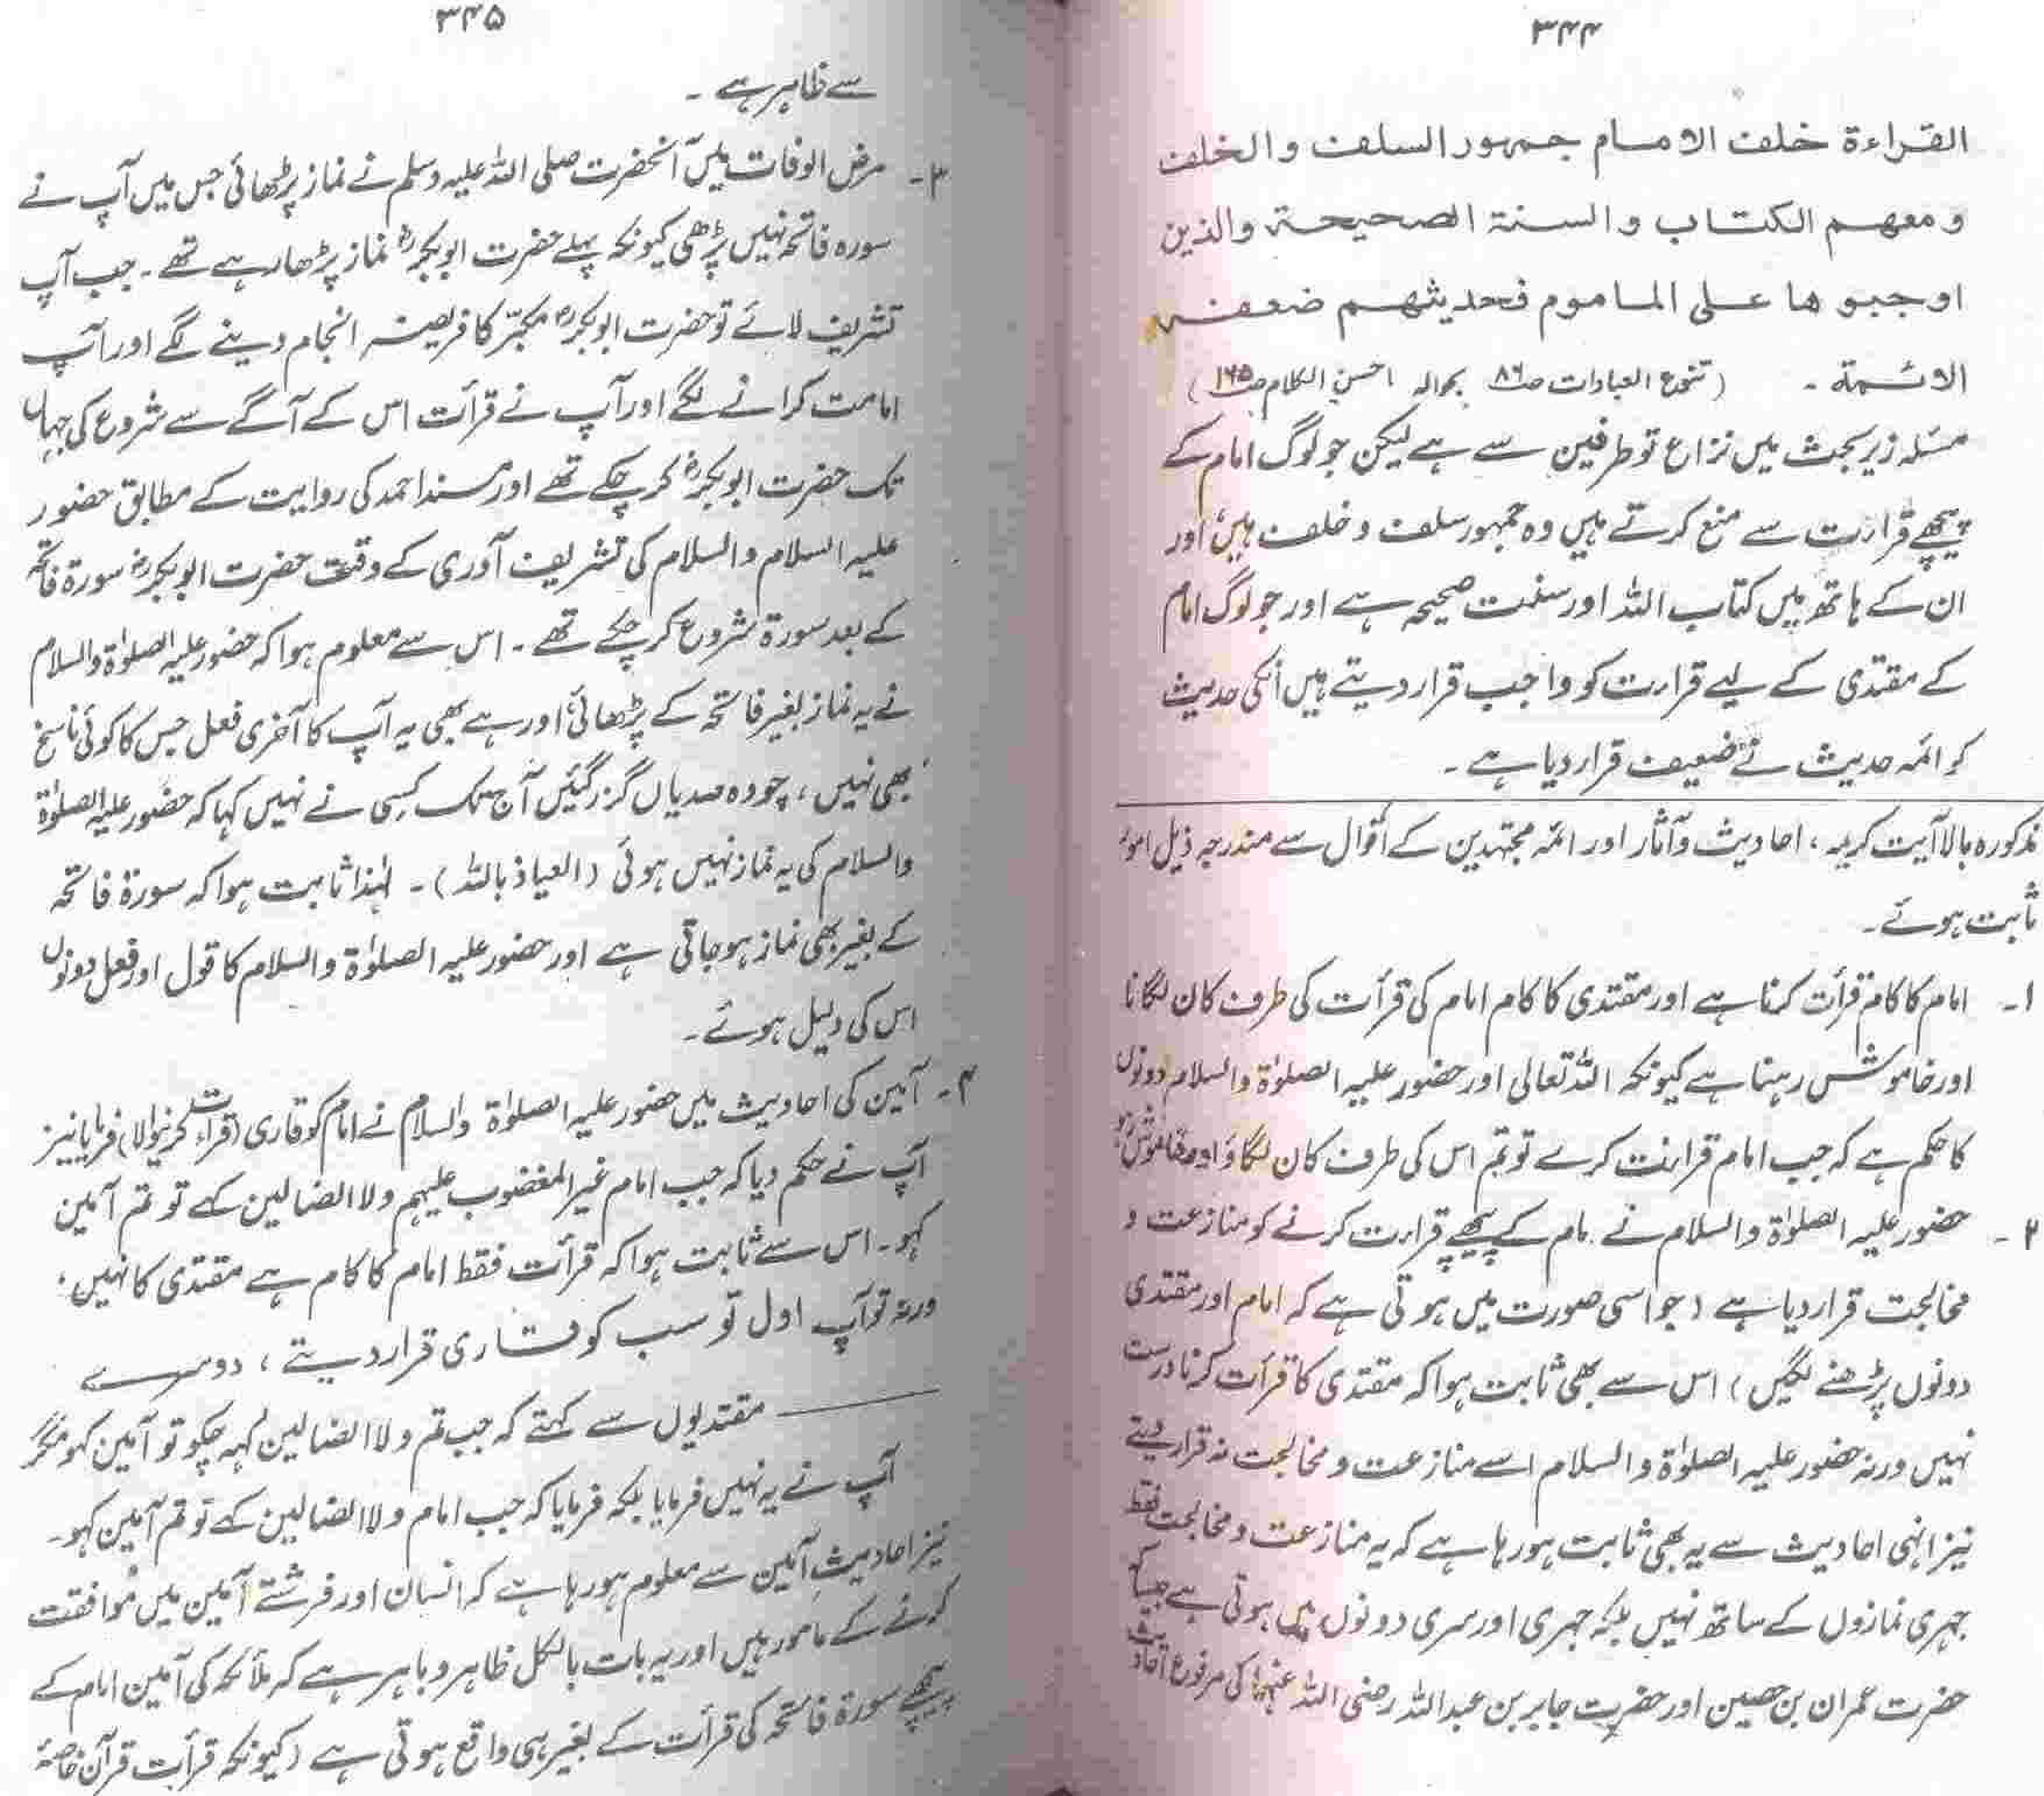 ۳۴۴
القراءة خلف الامام جمهور السلف والخلف
ومعهم الكتاب والسنة الصحيحة والذين
اوجبو ها على الماموم فحديثهم ضعفه
الائمة - (تنوع العبادات صـ۸۶ بحوالہ احسن الکلام صـ۱۶۵)
مسئلہ زیر بحث میں نزاع تو طرفین سے ہے لیکن جو لوگ امام کے
پیچھے قرارت سے منع کرتے ہیں وہ جمہور سلف و خلف ہیں، اور
ان کے ہاتھ میں کتاب اللہ اور سنت صحیحہ ہے اور جو لوگ امام
کے مقتدی کے لیے قرارت کو واجب قرار دیتے ہیں اُنکی حدیث
کو ائمہ حدیث نے ضعیف قرار دیا ہے۔
مذکورہ بالا آیت کریمہ، احادیث و آثار اور ائمہ مجتہدین کے اقوال سے مندرجہ ذیل امور
ثابت ہوئے۔
۱۔ امام کا کام قرأت کرنا ہے اور مقتدی کا کام امام کی قرأت کی طرف کان لگانا
اور خاموش رہنا ہے کیونکہ اللہ تعالی اور حضور علیہ الصلوٰة والسلام دونوں
کا حکم ہے کہ جب امام قرارت کرے تو تم اس کی طرف کان لگاؤ اور خاموش رہو
۲۔ حضور علیہ الصلوٰة والسلام نے امام کے پیچھے قرارت کرنے کو منازعت و
مخالجت قرار دیا ہے (جو اسی صورت میں ہوتی ہے کہ امام اور مقتدی
دونوں پڑھنے لگیں) اس سے بھی ثابت ہوا کہ مقتدی کا قرأت کرنا درست
نہیں ورنہ حضور علیہ الصلوٰة والسلام اسے منازعت و مخالجت نہ قرار دیتے
نیز انہی احادیث سے یہ بھی ثابت ہو رہا ہے کہ یہ منازعت و مخالجت فقط
جہری نمازوں کے ساتھ نہیں بلکہ جہری اور سری دونوں میں ہوتی ہے جیسا کہ
حضرت عمران بن حصین اور حضرت جابر بن عبداللہ رضی اللہ عنہما کی مرفوع احادیث
۳۴۵
سے ظاہر ہے۔
۳۔ مرض الوفات میں آنحضرت صلی اللہ علیہ وسلم نے نماز پڑھائی جس میں آپ نے
سورہ فاتحہ نہیں پڑھی کیونکہ پہلے حضرت ابوبکرؓ نماز پڑھا رہے تھے۔ جب آپ
تشریف لائے تو حضرت ابوبکرؓ مکبّر کا فریضہ انجام دینے لگے اور آپ
امامت کرانے لگے اور آپ نے قرأت اس کے آگے سے شروع کی جہاں
تک حضرت ابوبکرؓ کر چکے تھے اور مسند احمد کی روایت کے مطابق حضور
علیہ السلام والسلام کی تشریف آوری کے وقت حضرت ابوبکرؓ سورة فاتحہ
کے بعد سورة شروع کر چکے تھے۔ اس سے معلوم ہوا کہ حضور علیہ الصلوٰة والسلام
نے یہ نماز بغیر فاتحہ کے پڑھائی اور ہے بھی یہ آپ کا آخری فعل جس کا کوئی ناسخ
بھی نہیں، چودہ صدیاں گزر گئیں آج تک کسی نے نہیں کہا کہ حضور علیہ الصلوٰة
والسلام کی یہ نماز نہیں ہوئی (العیاذ باللہ)۔ لہٰذا ثابت ہوا کہ سورة فاتحہ
کے بغیر بھی نماز ہو جاتی ہے اور حضور علیہ الصلوٰة والسلام کا قول اور فعل دونوں
اس کی دلیل ہوئے۔
۴۔ آمین کی احادیث میں حضور علیہ الصلوٰة والسلام نے امام کو قاری (قراءت کرنیوالا) فرمایا نیز
آپ نے حکم دیا کہ جب امام غیر المغضوب علیہم ولا الضالین کہے تو تم آمین
کہو۔ اس سے ثابت ہوا کہ قرأت فقط امام کا کام ہے مقتدی کا نہیں،
ورنہ تو آپ اول تو سب کو قاری قرار دیتے، دوسرے
مقتدیوں سے کہتے کہ جب تم ولا الضالین کہہ چکو تو آمین کہو مگر
آپ نے یہ نہیں فرمایا بلکہ فرمایا کہ جب امام ولا الضالین کہے تو تم آمین کہو۔
نیز احادیثِ آمین سے معلوم ہو رہا ہے کہ انسان اور فرشتے آمین میں موافقت
کرنے کے مامور ہیں اور یہ بات بالکل ظاہر و باہر ہے کہ ملائکہ کی آمین امام کے
پیچھے سورة فاتحہ کی قرأت کے بغیر ہی واقع ہوتی ہے (کیونکہ قرأت قرآن خاصۂ